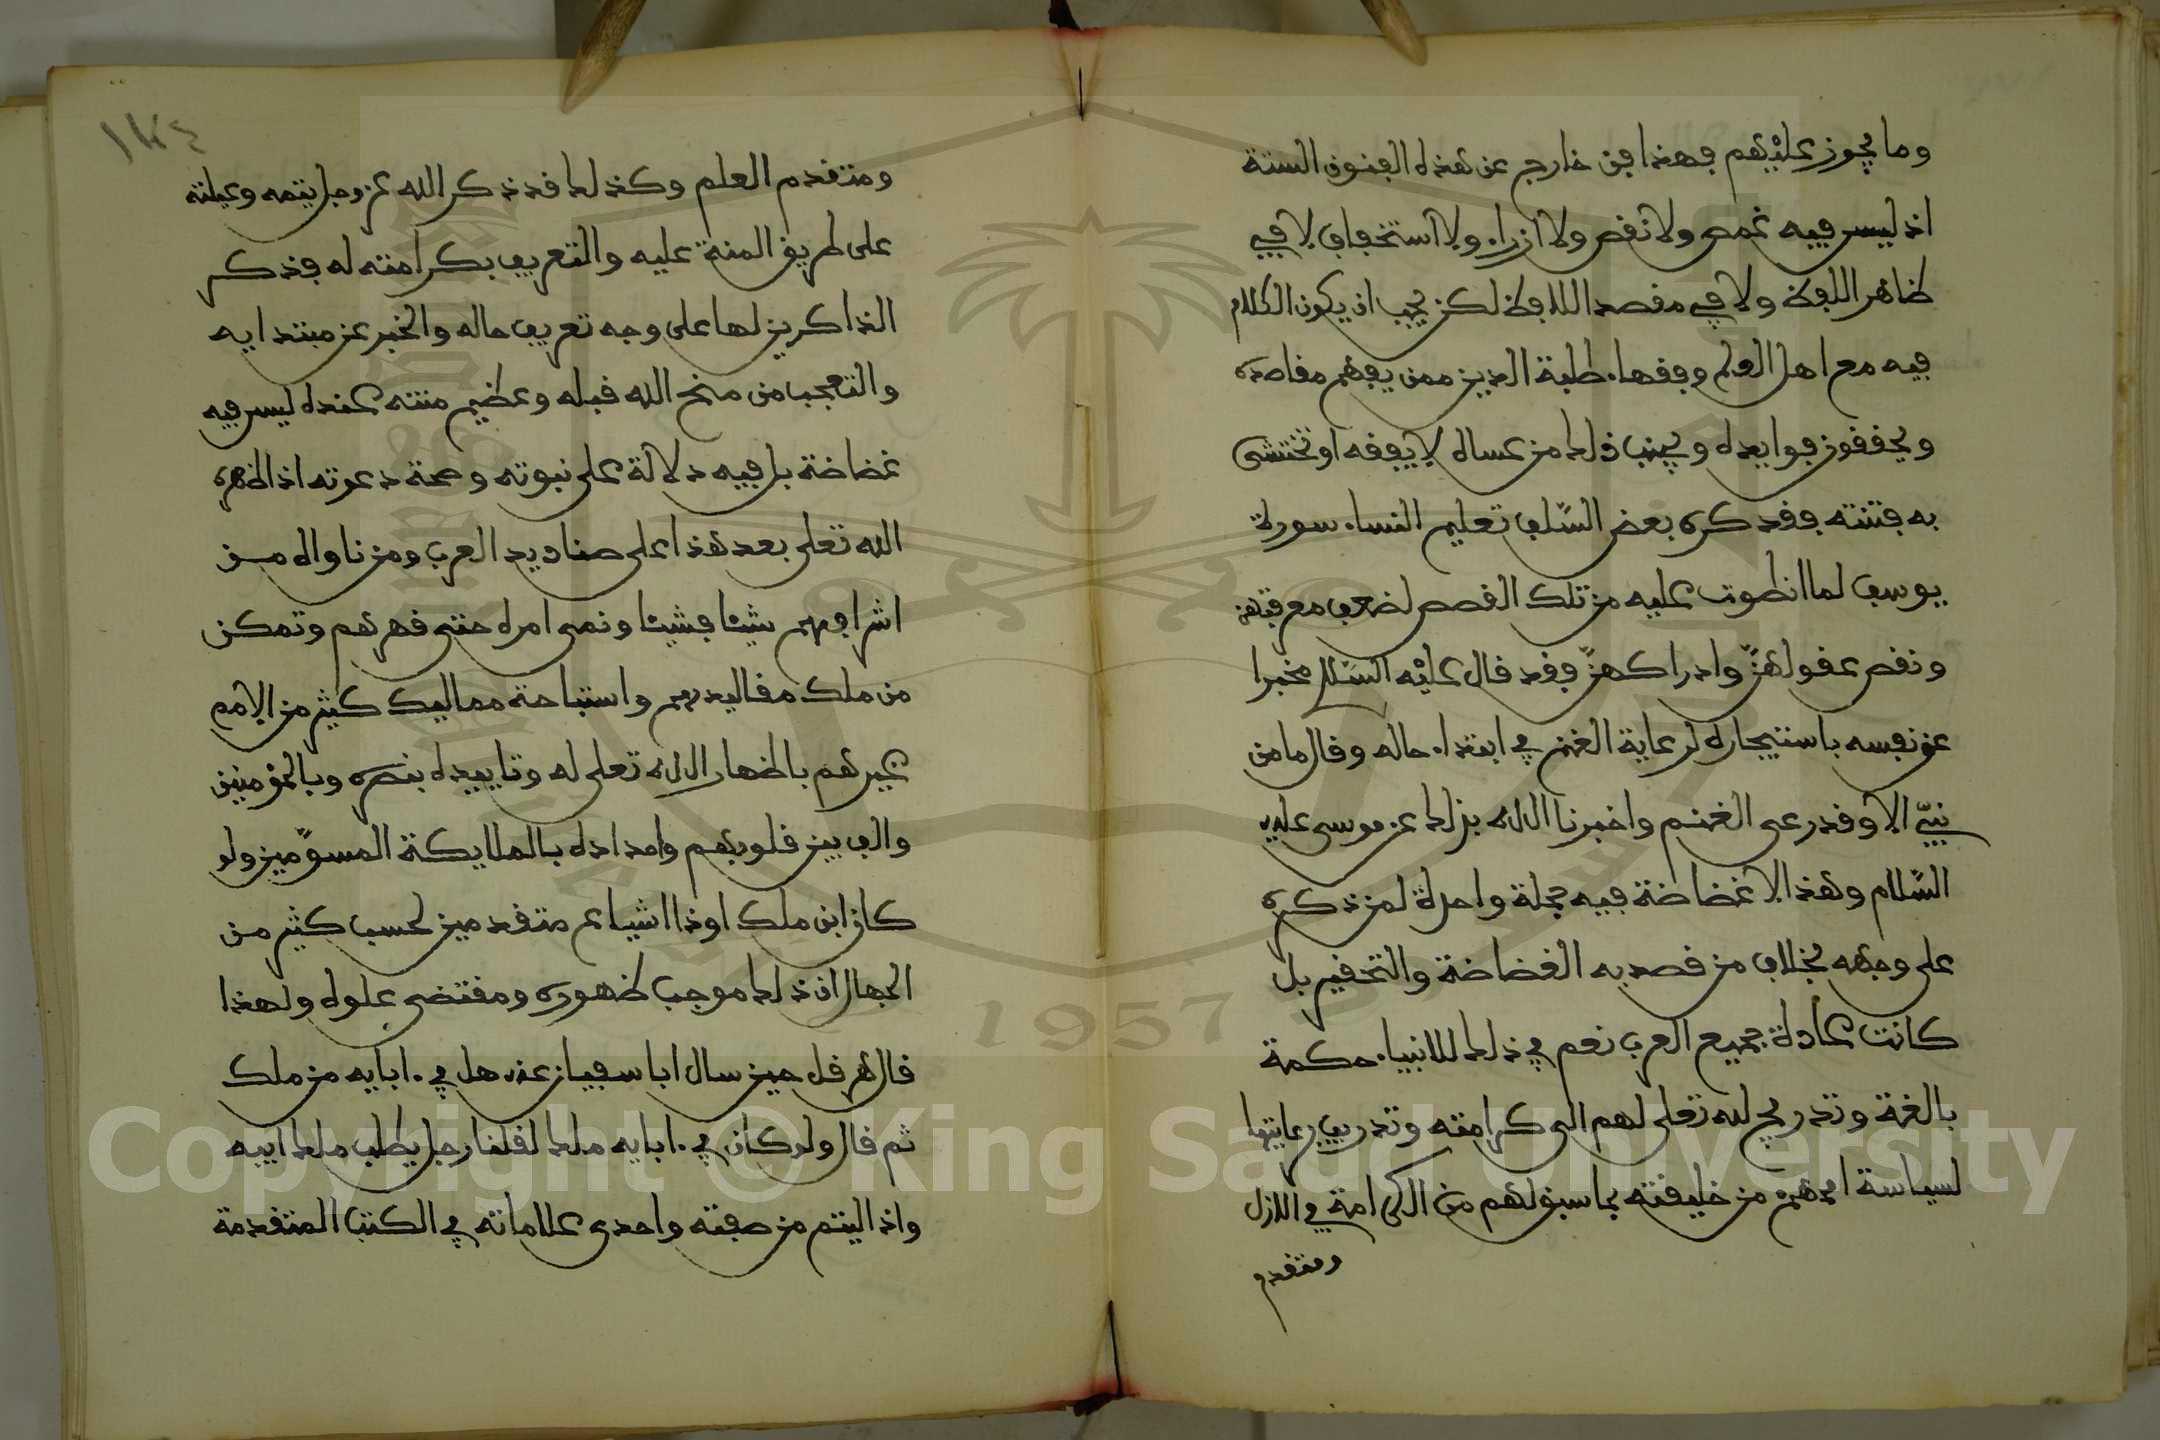 وما يجوز عليهم فهذا فن خارج عن هذه الفنون الستة
اذ ليس فيه غمص ولا نقص ولا ازراء ولا استخفاف لا في
ظاهر اللفظ ولا في مقصد اللافظ لكن يجب ان يكون الكلام
فيه مع اهل العلم وفقهاء طلبة الدين ممن يفهم مقاصده
ويحققون فوايده ويجنب ذلك من عساه لا يفقه او تختشى
به فتنته فقد كره بعض السلف تعليم النساء سورة
يوسف لما انطوت عليه من تلك القصص لضعف معرفتهن
ونقص عقولهنّ وادراكهنّ فقد قال عليه السّلم مخبرا
عن نفسه باستيجاره لرعاية الغنم في ابتداء حاله وقال ما من
نبيّ الا وقد رعى الغنم واخبرنا الله بذلك عن موسى عليه
السّلام وهذا لا غضاضة فيه جملة واحدة لمن ذكره
على وجهه بخلاف من قصد به الغضاضة والتحقير بل
كانت عادة جميع العرب نعم في ذلك للانبياء حكمة
بالغة وتدريج لله تعلى لهم الى كرامته وتدريب برعايتها
لسياسة اممهم من خليقته بما سبق لهم من الكرامة في الازل
ومتقدم
١٧٤
ومتقدم العلم وكذلك قد ذكر الله عز وجل يتمه وعيلته
على طريق المنة عليه والتعريف بكرامته له فذكر
الذاكرين لها على وجه تعريف حاله والخبر عن مبتدايه
والتعجب من منح الله قبله وعظيم منته عنده ليس فيه
غضاضة بل فيه دلالة على نبوته وصحة دعوته اذ اظهره
الله تعلى بعد هذا على صناديد العرب ومن ناواه من
اشرافهم شيئا فشيئا ونمى امره حتى قهرهم وتمكن
من ملك مقاليدهم واستباحة مماليك كثير من الامم
غيرهم باظهار الله تعلى له وتاييده بنصره وبالمؤمنين
والف بين قلوبهم وامداده بالملايكة المسوّمين ولو
كان ابن ملك او ذا اشياع متقدمين لحسب كثير من
الجهال ان ذلك موجب ظهوره ومقتضى علوه ولهذا
قال هرقل حين سال ابا سفيان عنه هل في ءابايه من ملك
ثم قال ولو كان في ءابايه ملك لقلنا رجل يطلب ملك ابيه
واذ اليتم من صفته واحدى علاماته في الكتب المتقدمة
1957
Copyright © King Saud University